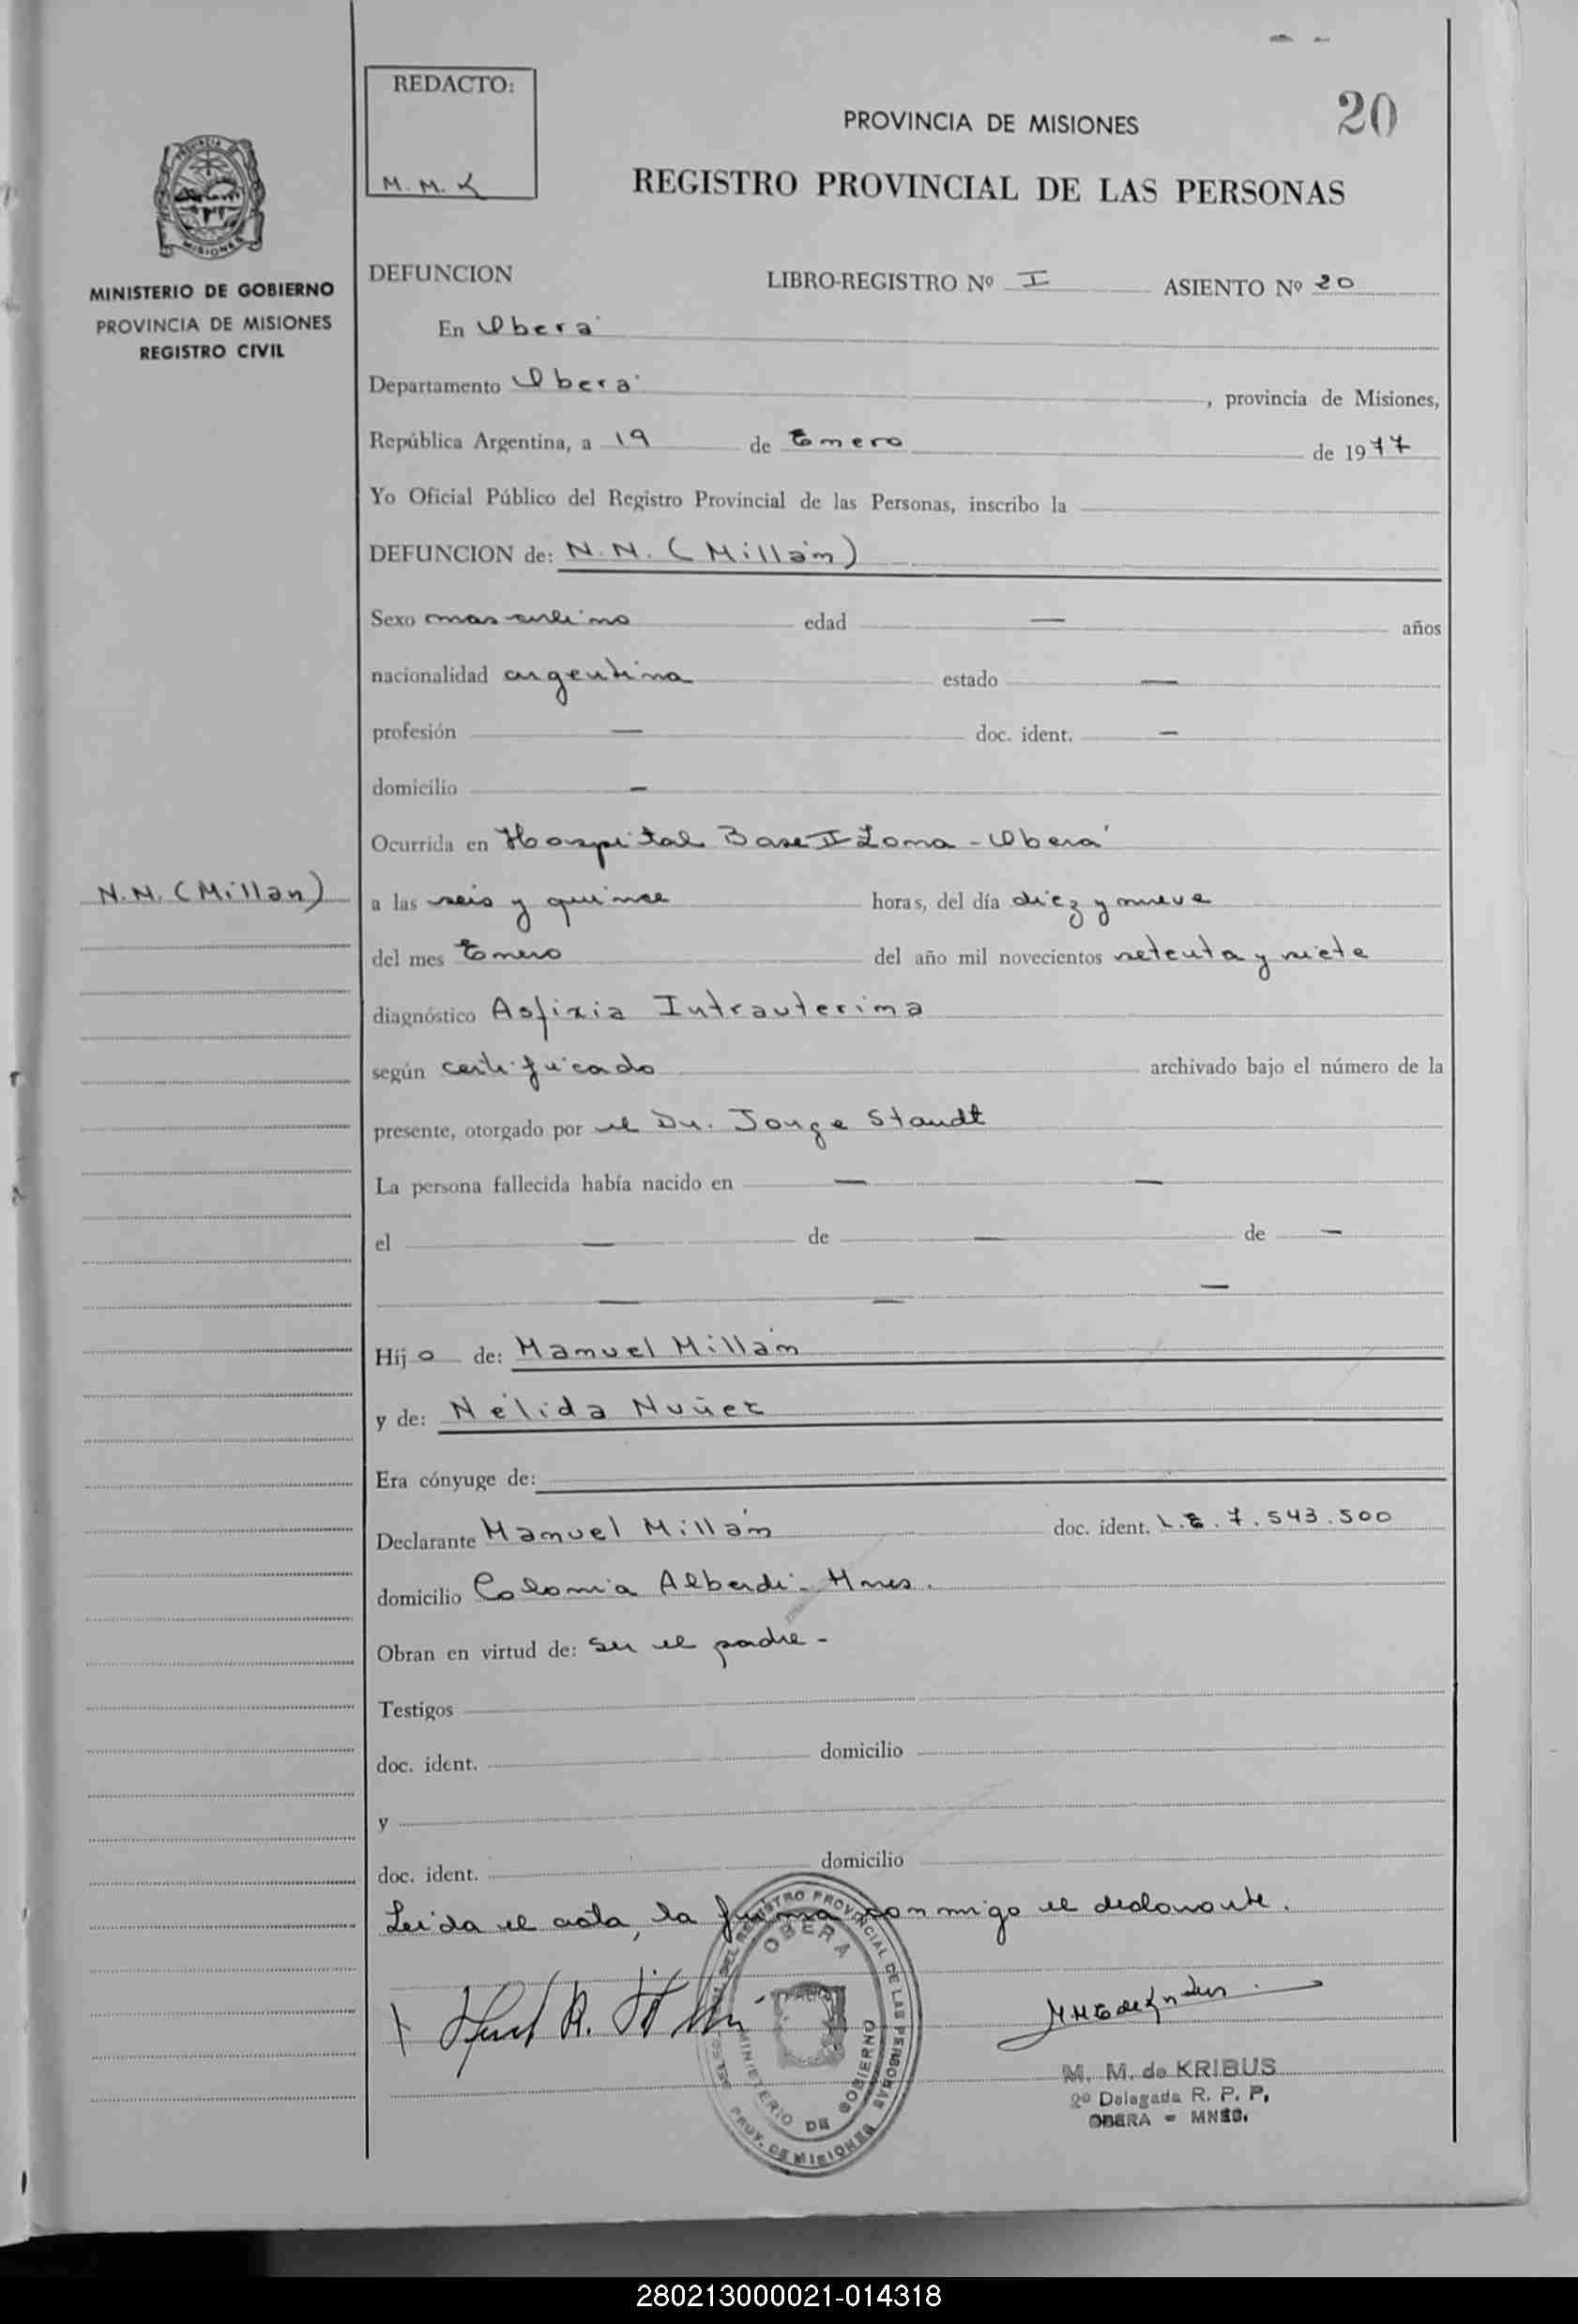 REDACTO:
M. M. K
PROVINCIA DE MISIONES
20
REGISTRO PROVINCIAL DE LAS PERSONAS
MISIONES
MINISTERIO DE GOBIERNO
PROVINCIA DE MISIONES
REGISTRO CIVIL
DEFUNCION LIBRO-REGISTRO Nº I ASIENTO Nº 20
En Oberá
Departamento Oberá, provincia de Misiones,
República Argentina, a 19 de Enero de 1977
Yo Oficial Público del Registro Provincial de las Personas, inscribo la
DEFUNCION de: N.N. (Millán)
Sexo masculino edad — años
nacionalidad argentina estado —
profesión — doc. ident. —
domicilio —
Ocurrida en Hospital Base II Zona - Oberá
N.N. (Millan)
a las seis y quince horas, del día diez y nueve
del mes Enero del año mil novecientos setenta y siete
diagnóstico Asfixia Intrauterina
según certificado archivado bajo el número de la
presente, otorgado por el Dr. Jorge Staudt
La persona fallecida había nacido en — —
el — de — de —
— — —
Hijo de: Manuel Millán
y de: Nélida Nuñez
Era cónyuge de:
Declarante Manuel Millán doc. ident. L.E. 7.543.500
domicilio Colonia Alberdi - Mnes.
Obran en virtud de: Ser el padre -
Testigos
doc. ident. domicilio
y
doc. ident. domicilio
Leida el acta, la firma conmigo el declarante.
DEL REGISTRO PROVINCIAL DE LAS PERSONAS
OBERA
MINISTERIO DE GOBIERNO
PROV. DE MISIONES
M. M. de KRIBUS
2º Delegada R. P. P.
OBERA - MNES.
280213000021-014318